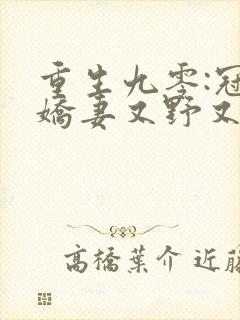 重生九零:冠
嬌妻又野又
高橋葉介 近藤